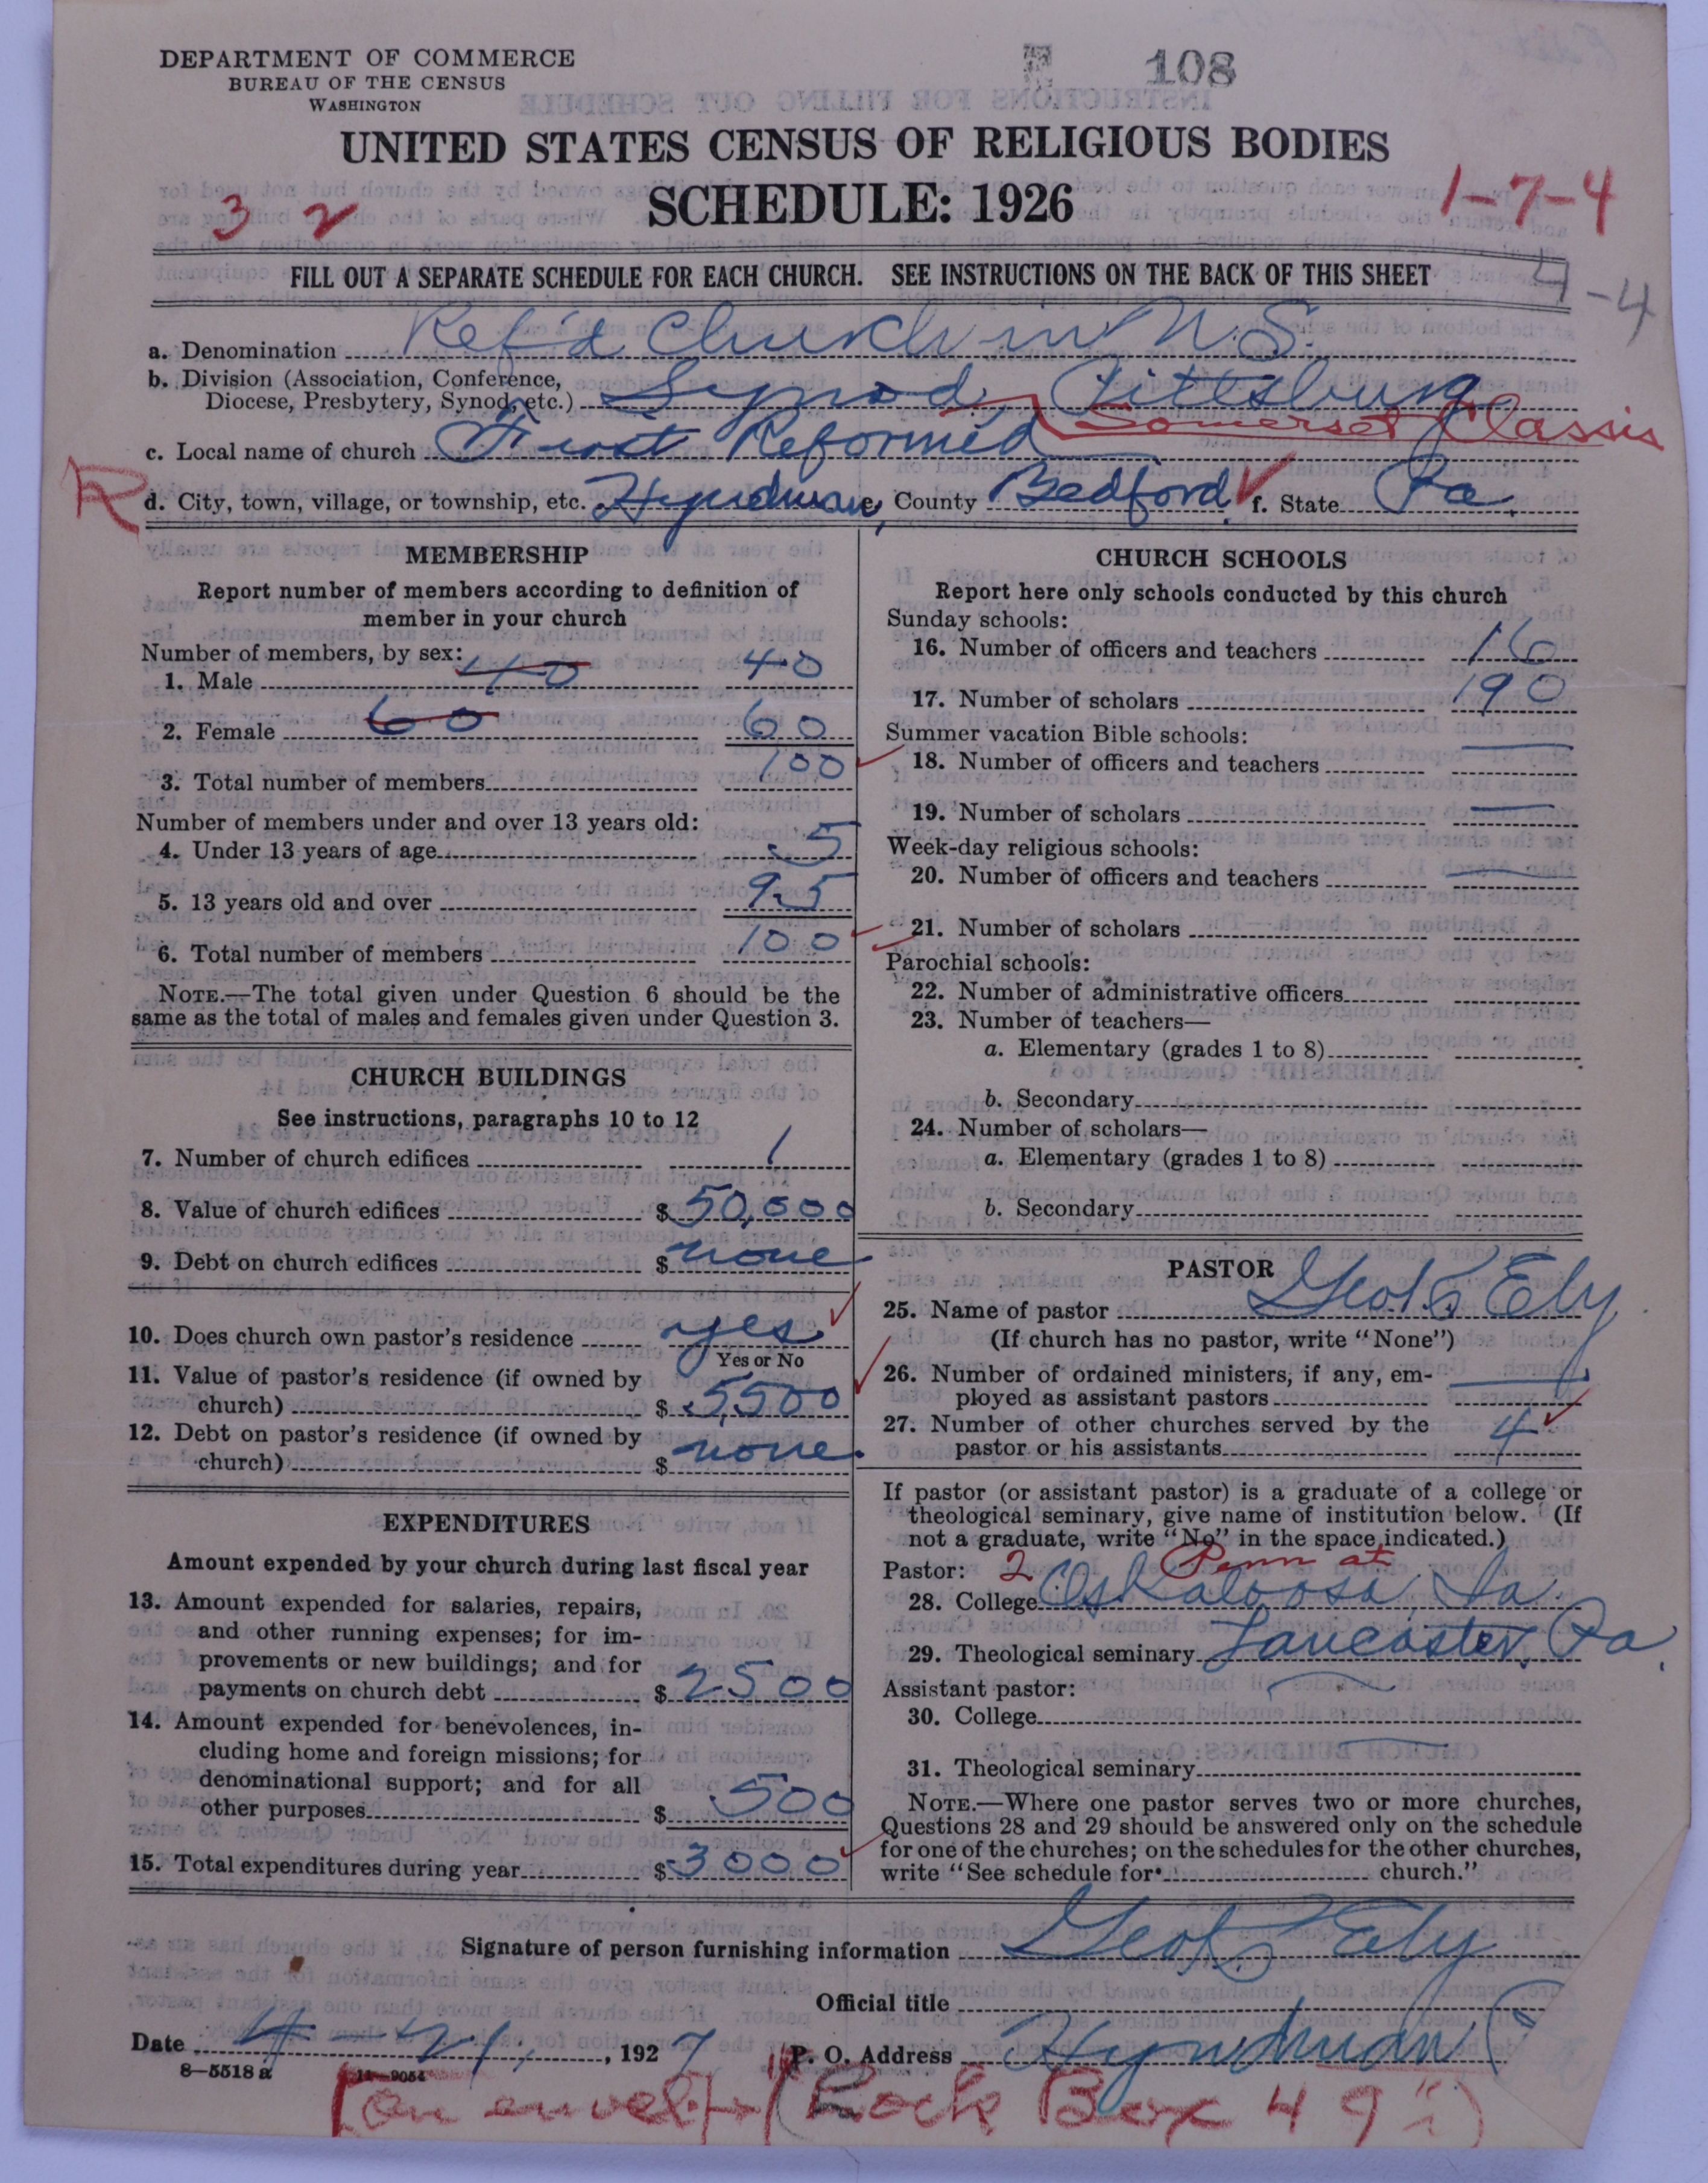 DEPARTMENT OF COMMERCE
BUREAU OF THE CENSUS
WASHINGTON
108
UNITED STATES CENSUS OF RELIGIOUS BODIES
SCHEDULE: 1926
3 2
1-7-4
4-4
FILL OUT A SEPARATE SCHEDULE FOR EACH CHURCH. SEE INSTRUCTIONS ON THE BACK OF THIS SHEET
a. Denomination Ref'd Church in U.S.
b. Division (Association, Conference, Diocese, Presbytery, Synod, etc.) Synod, Pittsburg
Somerset Classis
c. Local name of church First Reformed
R
d. City, town, village, or township, etc. Hyndman, County Bedford f. State Pa.
MEMBERSHIP
Report number of members according to definition of
member in your church
Number of members, by sex:
1. Male 40 40
2. Female 60 60
3. Total number of members 100
Number of members under and over 13 years old:
4. Under 13 years of age 5
5. 13 years old and over 95
6. Total number of members 100
NOTE.—The total given under Question 6 should be the
same as the total of males and females given under Question 3.
CHURCH BUILDINGS
See instructions, paragraphs 10 to 12
7. Number of church edifices 1
8. Value of church edifices $ 50,000
9. Debt on church edifices $ none
10. Does church own pastor's residence yes
Yes or No
11. Value of pastor's residence (if owned by
church) $ 5,500
12. Debt on pastor's residence (if owned by
church) $ none.
EXPENDITURES
Amount expended by your church during last fiscal year
13. Amount expended for salaries, repairs,
and other running expenses; for im-
provements or new buildings; and for
payments on church debt $ 2500
14. Amount expended for benevolences, in-
cluding home and foreign missions; for
denominational support; and for all
other purposes $ 500
15. Total expenditures during year $ 3000
CHURCH SCHOOLS
Report here only schools conducted by this church
Sunday schools:
16. Number of officers and teachers 16
17. Number of scholars 190
Summer vacation Bible schools:
18. Number of officers and teachers
19. Number of scholars
Week-day religious schools:
20. Number of officers and teachers
21. Number of scholars
Parochial schools:
22. Number of administrative officers
23. Number of teachers—
a. Elementary (grades 1 to 8)
b. Secondary
24. Number of scholars—
a. Elementary (grades 1 to 8)
b. Secondary
PASTOR
25. Name of pastor Ely
(If church has no pastor, write "None")
26. Number of ordained ministers, if any, em-
ployed as assistant pastors
27. Number of other churches served by the
pastor or his assistants 4
If pastor (or assistant pastor) is a graduate of a college or
theological seminary, give name of institution below. (If
not a graduate, write "No" in the space indicated.)
Pastor: 2 Penn at
28. College Oskaloosa, Ia.
29. Theological seminary Lancaster, Pa.
Assistant pastor:
30. College
31. Theological seminary
NOTE.—Where one pastor serves two or more churches,
Questions 28 and 29 should be answered only on the schedule
for one of the churches; on the schedules for the other churches,
write "See schedule for church."
Signature of person furnishing information Ely
Official title
Date 4-21, 1927 P. O. Address Hyndman
8—5518 a 11—9054
[on envel → ("Rock Box 49")